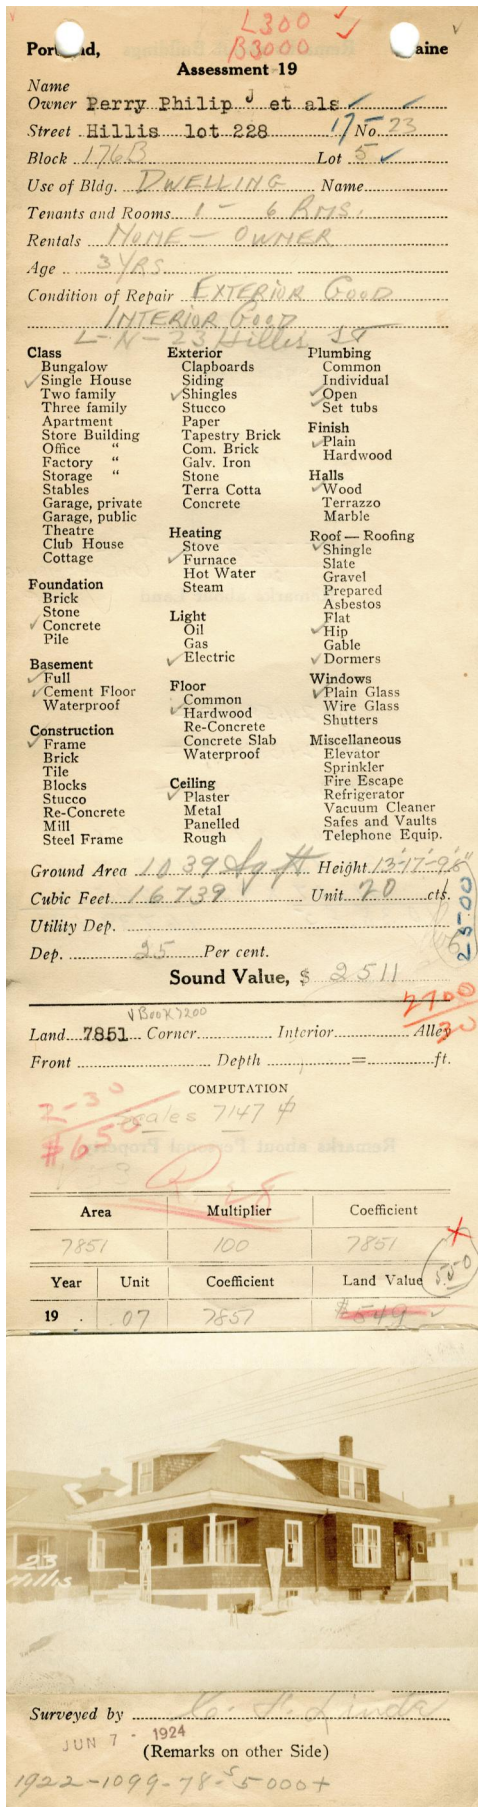 L300
B3000
Portland, Maine
Assessment 19
Name
Owner Perry Philip J et als
Street Hillis lot 228 17 No. 23
Block 176B Lot 5
Use of Bldg. DWELLING Name
Tenants and Rooms 1 - 6 RMS.
Rentals NONE - OWNER
Age 3 YRS
Condition of Repair EXTERIOR GOOD
INTERIOR GOOD
L-N-23 Hillis ST
Class
Bungalow
✓ Single House
Two family
Three family
Apartment
Store Building
Office "
Factory "
Storage "
Stables
Garage, private
Garage, public
Theatre
Club House
Cottage
Foundation
Brick
Stone
✓ Concrete
Pile
Basement
✓ Full
✓ Cement Floor
Waterproof
Construction
✓ Frame
Brick
Tile
Blocks
Stucco
Re-Concrete
Mill
Steel Frame
Exterior
Clapboards
Siding
✓ Shingles
Stucco
Paper
Tapestry Brick
Com. Brick
Galv. Iron
Stone
Terra Cotta
Concrete
Heating
Stove
✓ Furnace
Hot Water
Steam
Light
Oil
Gas
✓ Electric
Floor
Common
✓ Hardwood
Re-Concrete
Concrete Slab
Waterproof
Ceiling
✓ Plaster
Metal
Panelled
Rough
Plumbing
Common
Individual
✓ Open
✓ Set tubs
Finish
✓ Plain
Hardwood
Halls
✓ Wood
Terrazzo
Marble
Roof — Roofing
✓ Shingle
Slate
Gravel
Prepared
Asbestos
Flat
✓ Hip
Gable
✓ Dormers
Windows
✓ Plain Glass
Wire Glass
Shutters
Miscellaneous
Elevator
Sprinkler
Fire Escape
Refrigerator
Vacuum Cleaner
Safes and Vaults
Telephone Equip.
Ground Area 1039 Sq ft Height 13'-17'-9'8"
Cubic Feet 16739 Unit 20 cts.
2500
Utility Dep.
Dep. 25 Per cent.
Sound Value, $ 2511
2700
30
√ Book 7200
Land 7851 Corner Interior Alley
Front Depth = ft.
COMPUTATION
2-30
scales 7147
$650
Area Multiplier Coefficient
7851 100 7851
Year Unit Coefficient Land Value
550
19 .07 7851 $549
23
Hillis
Surveyed by
JUN 7 - 1924
(Remarks on other Side)
1922-1099-78-$5000+